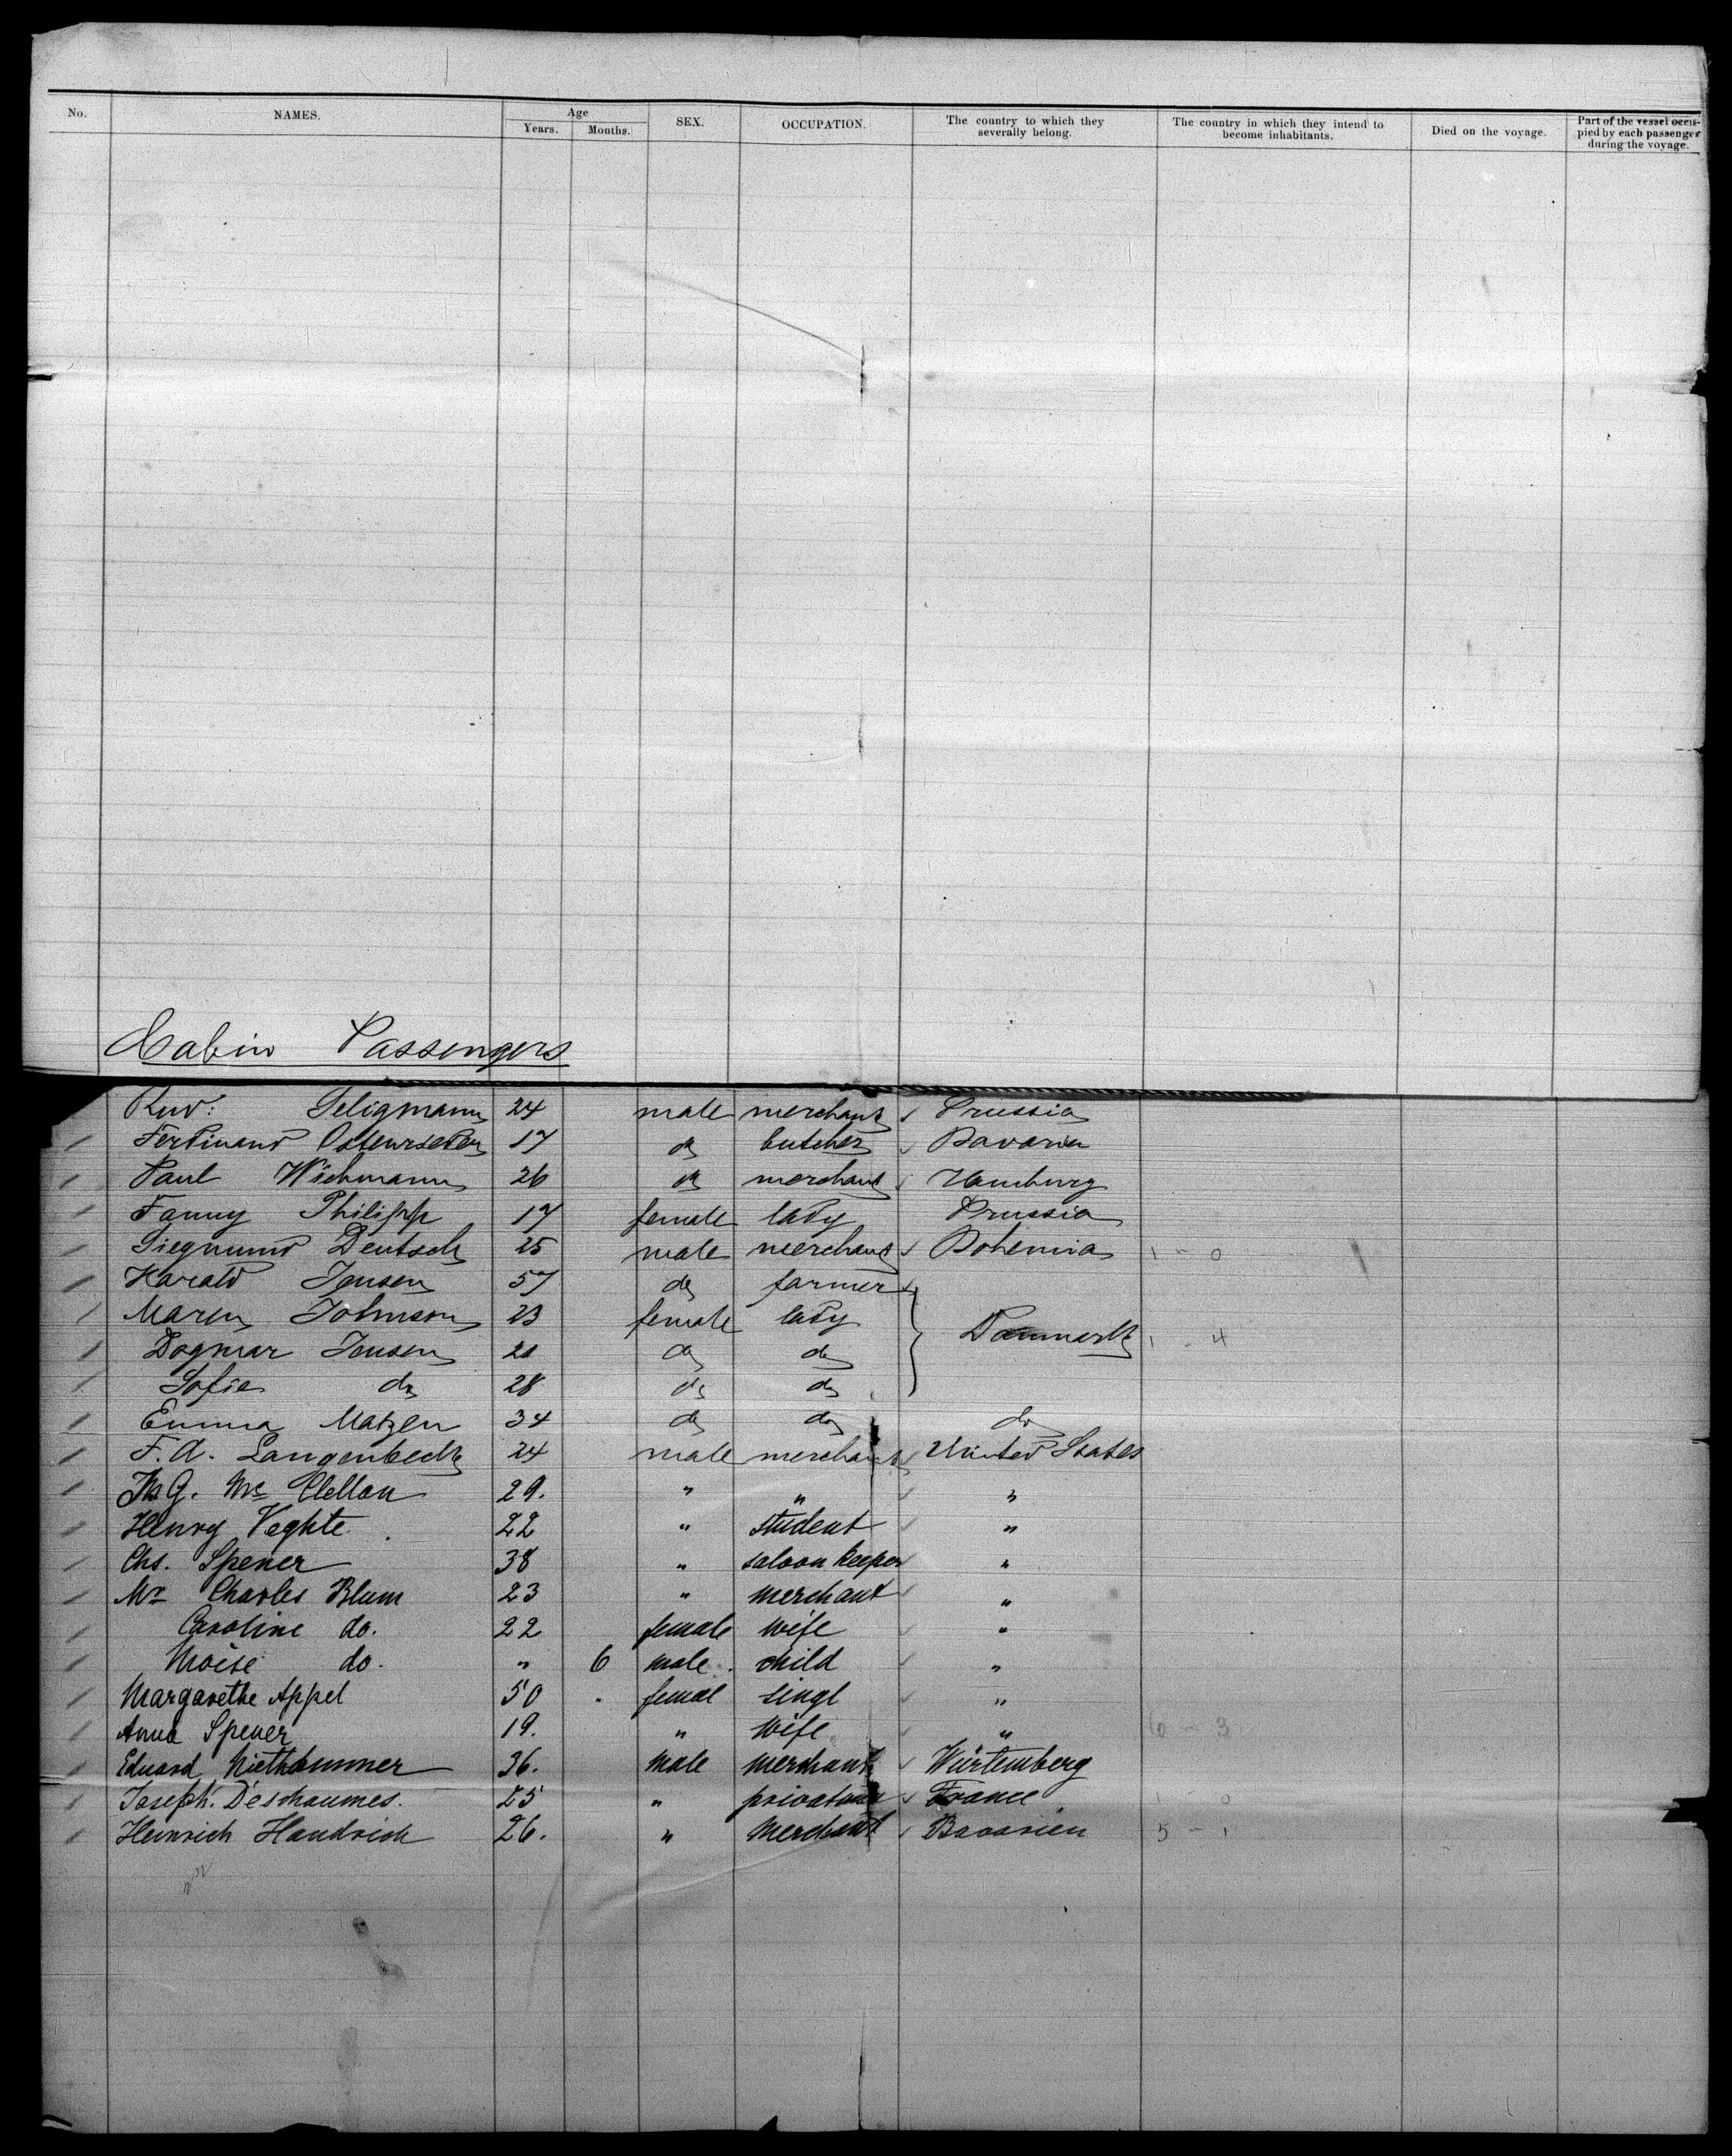 No. NAMES. Age Years. Months. SEX. OCCUPATION. The country to which they severally belong. The country in which they intend to become inhabitants. Died on the voyage. Part of the vessel occupied by each passenger during the voyage.
Cabin Passengers
Rud: Seligmann 24 male merchant Prussia
Ferdinand 17 do butcher Bavaria
Paul Wichmann 26 do merchant Hamburg
Fanny Philipp 17 female lady Prussia
Siegmund Deutsch 25 male merchant Bohemia 1 - 0
Harald Jensen 57 do farmer
Maren Johnson 23 female lady Danmark 1 - 4
Dagmar Jensen 21 do do
Sofie do 28 do do
Emma Matzen 34 do do do
F. A. Langenbeck 24 male merchant United States
G. Mc Clellan 29. " " "
Henry Veghte 22 " student "
Chs. Spener 38 " saloon keeper "
Mr Charles Blum 23 " merchant "
Caroline do. 22 female wife "
Moïse do. " 6 male child "
Margarethe Appel 50 femal singl "
Anna Spener 19. " wife " 6 - 3
Eduard Niethammer 36. male merchant Würtemberg
Joseph Deschaumes. 25 " France 1 0
Heinrich Handrick 26. " merchant Bavarien 5 - 1